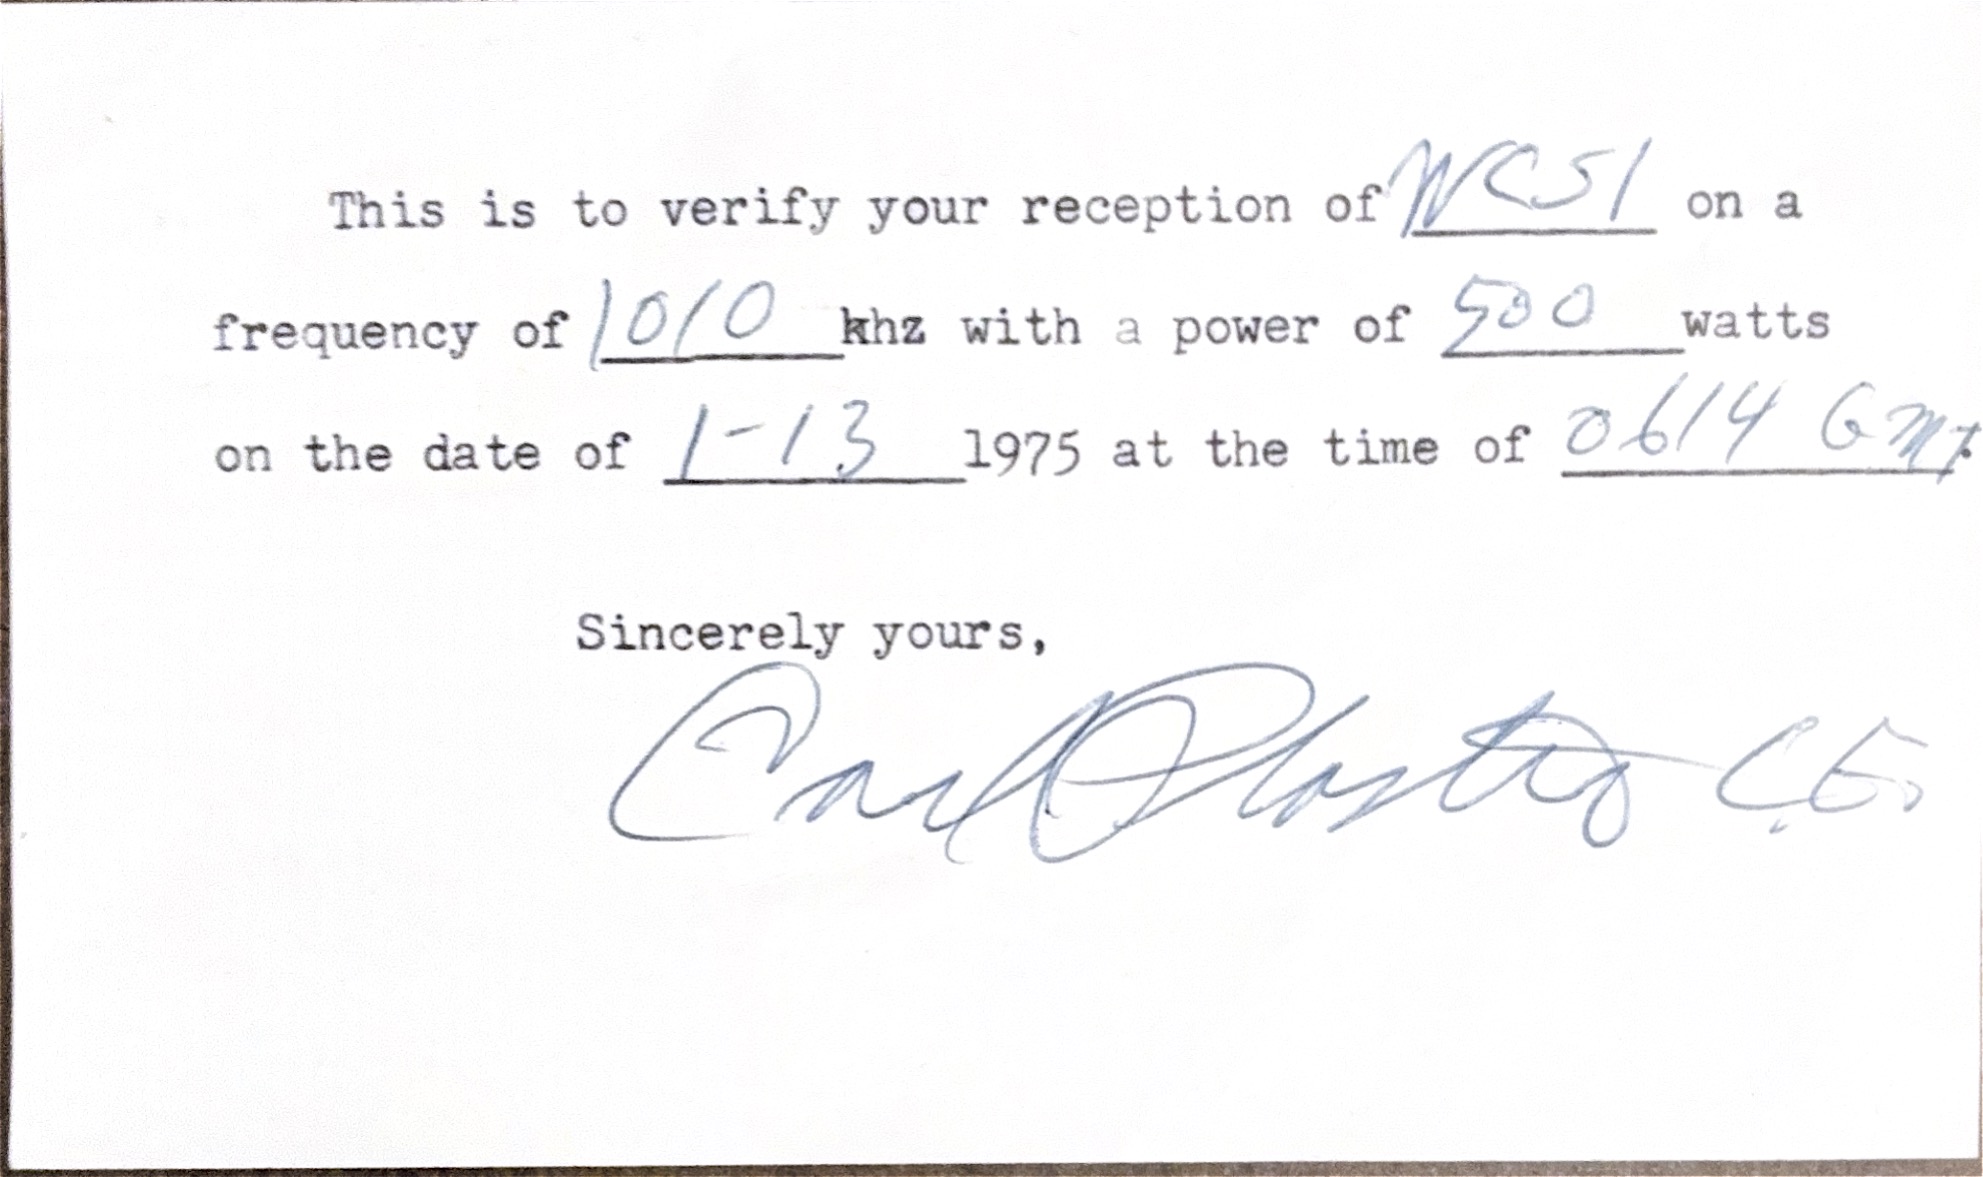 This is to verify your reception of WCSI on a
frequency of 1010 khz with a power of 500 watts
on the date of 1-13 1975 at the time of 0614 GMT
Sincerely yours,
Carl C.E.